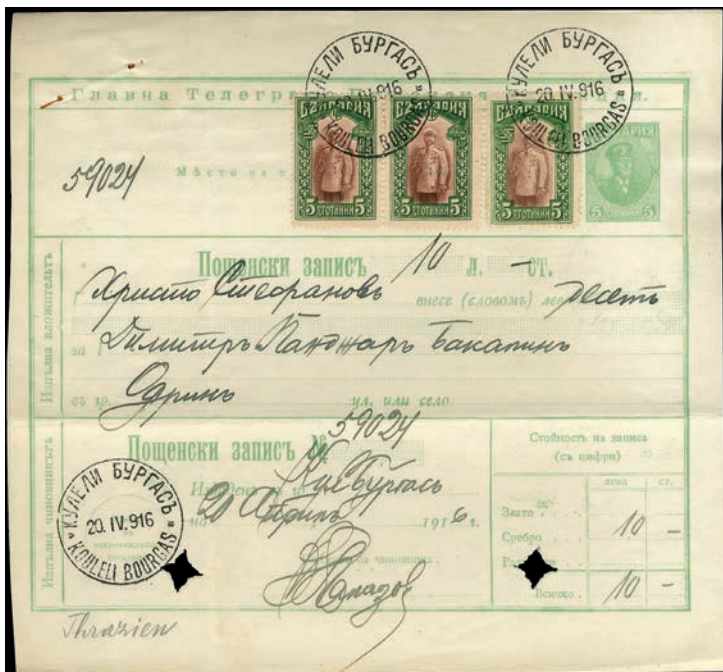 КУЛЕЛИ БУРГАСЪ
20.IV.916
KOULELI BOURGAS
КУЛЕЛИ БУРГАСЪ
20.IV.916
KOULELI BOURGAS
Главна
БЪЛГАРИЯ
5 СТОТИНКИ 5
БЪЛГАРИЯ
5 СТОТИНКИ 5
БЪЛГАРИЯ
5 СТОТИНКИ 5
5 5
59024
Мѣсто
Пощенски записъ 10 л. – ст.
Христо Стефановъ внесе (словомъ) лева десетъ
за Димитръ Бакалинъ
съ гр. Одринъ ул. или село
Изпълва вложительтъ
Пощенски записъ № 59024
Кул. Бургасъ
на 20 Априлъ 1916 г.
Изпълва чиновникътъ
КУЛЕЛИ БУРГАСЪ
20.IV.916
KOULELI BOURGAS
Стойность на записа
(съ цифри)
лева ст.
Злато
Сребро 10 –
Всичко 10 –
Thrazien